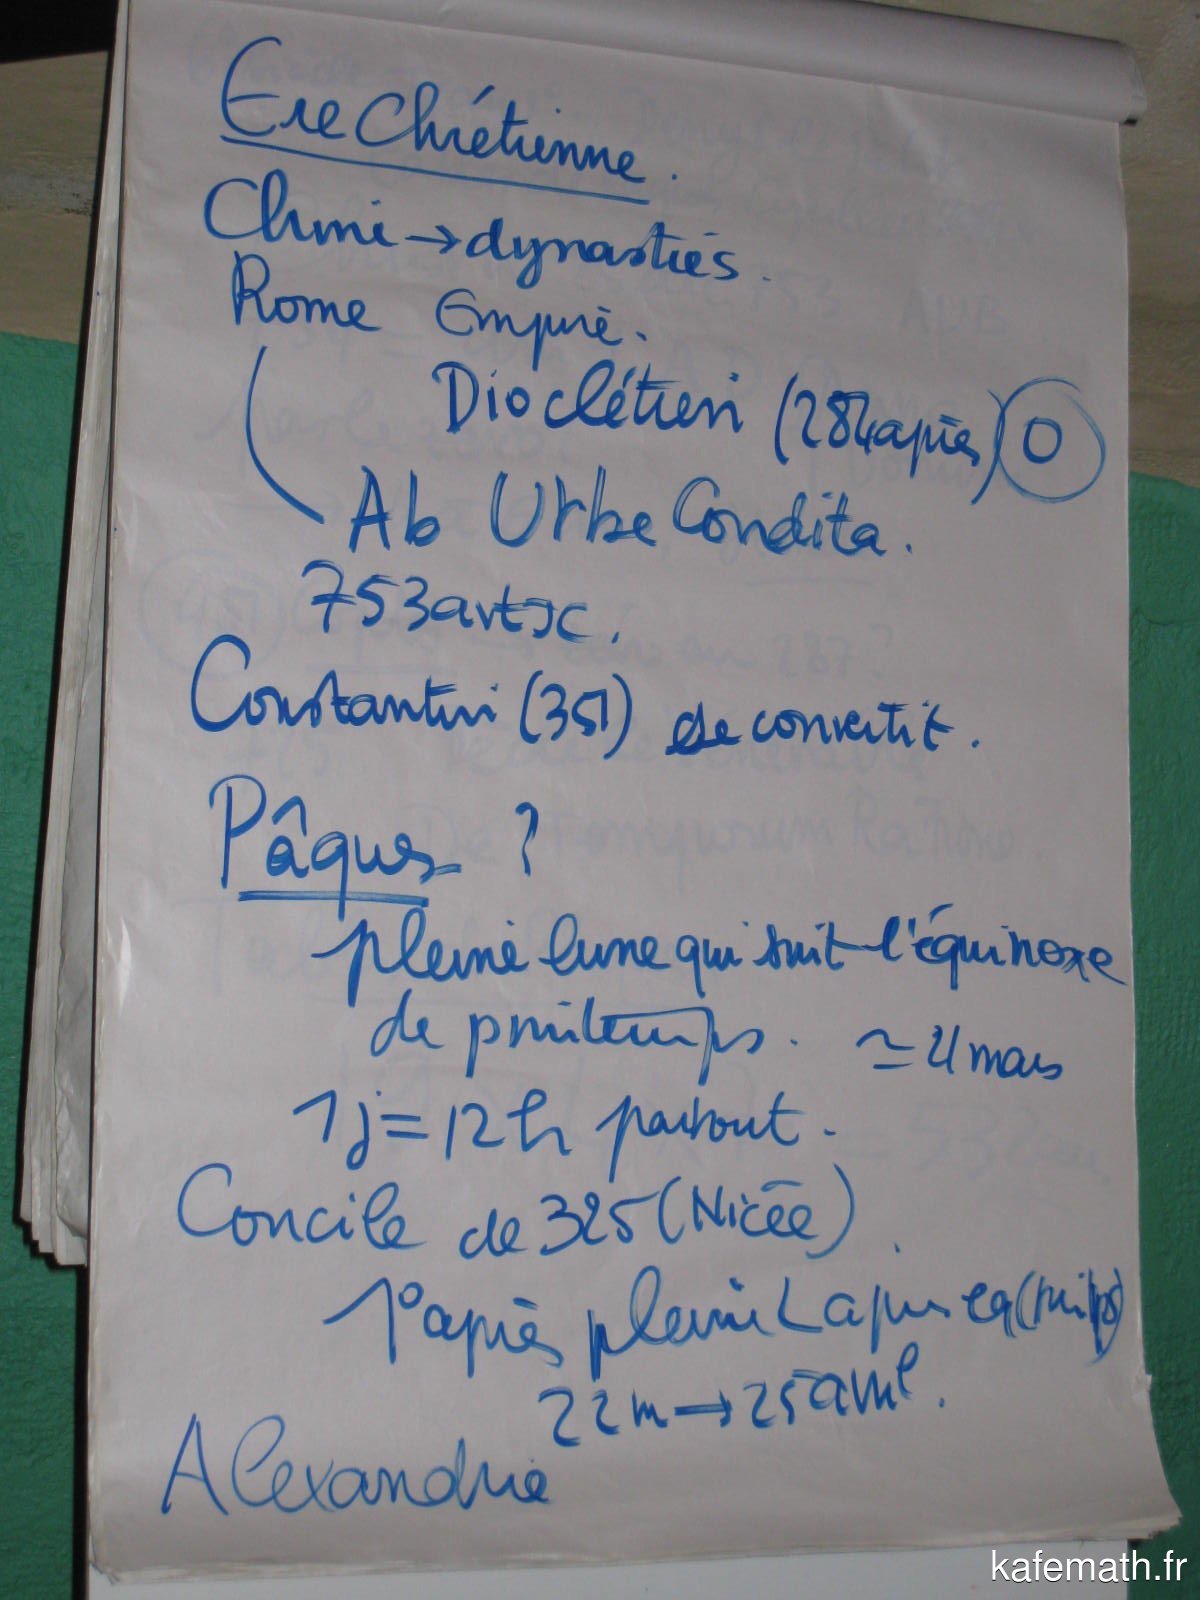 Ere Chrétienne.
Chine → dynasties.
Rome Empire.
Dioclétien (284 après) 0
Ab Urbe Condita.
753 avt JC.
Constantin (351) se convertit.
Pâques ?
pleine lune qui suit l'équinoxe
de printemps. ≃ 21 mars
1j = 12h partout.
Concile de 325 (Nicée).
1° après pleine L après eq (printps)
22 m → 25 avril.
Alexandrie
kafemath.fr